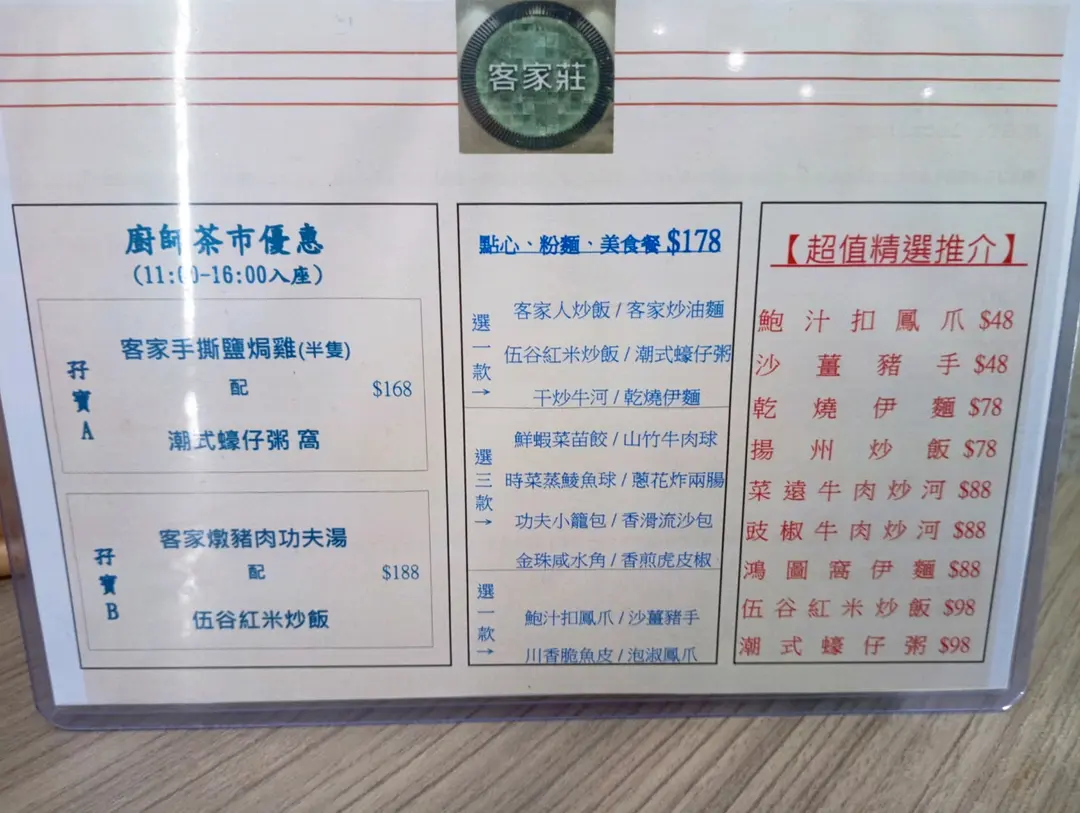 客家莊
廚師茶市優惠
(11:00-16:00入座)
孖寶A
客家手撕鹽焗雞(半隻)
配 $168
潮式蠔仔粥 窩
孖寶B
客家燉豬肉功夫湯
配 $188
伍谷紅米炒飯
點心、粉麵、美食餐 $178
選一款→
客家人炒飯 / 客家炒油麵
伍谷紅米炒飯 / 潮式蠔仔粥
干炒牛河 / 乾燒伊麵
選三款→
鮮蝦菜苗餃 / 山竹牛肉球
時菜蒸鯪魚球 / 蔥花炸兩腸
功夫小籠包 / 香滑流沙包
金珠咸水角 / 香煎虎皮椒
選一款→
鮑汁扣鳳爪 / 沙薑豬手
川香脆魚皮 / 泡淑鳳爪
【超值精選推介】
鮑汁扣鳳爪 $48
沙薑豬手 $48
乾燒伊麵 $78
揚州炒飯 $78
菜遠牛肉炒河 $88
豉椒牛肉炒河 $88
鴻圖窩伊麵 $88
伍谷紅米炒飯 $98
潮式蠔仔粥 $98